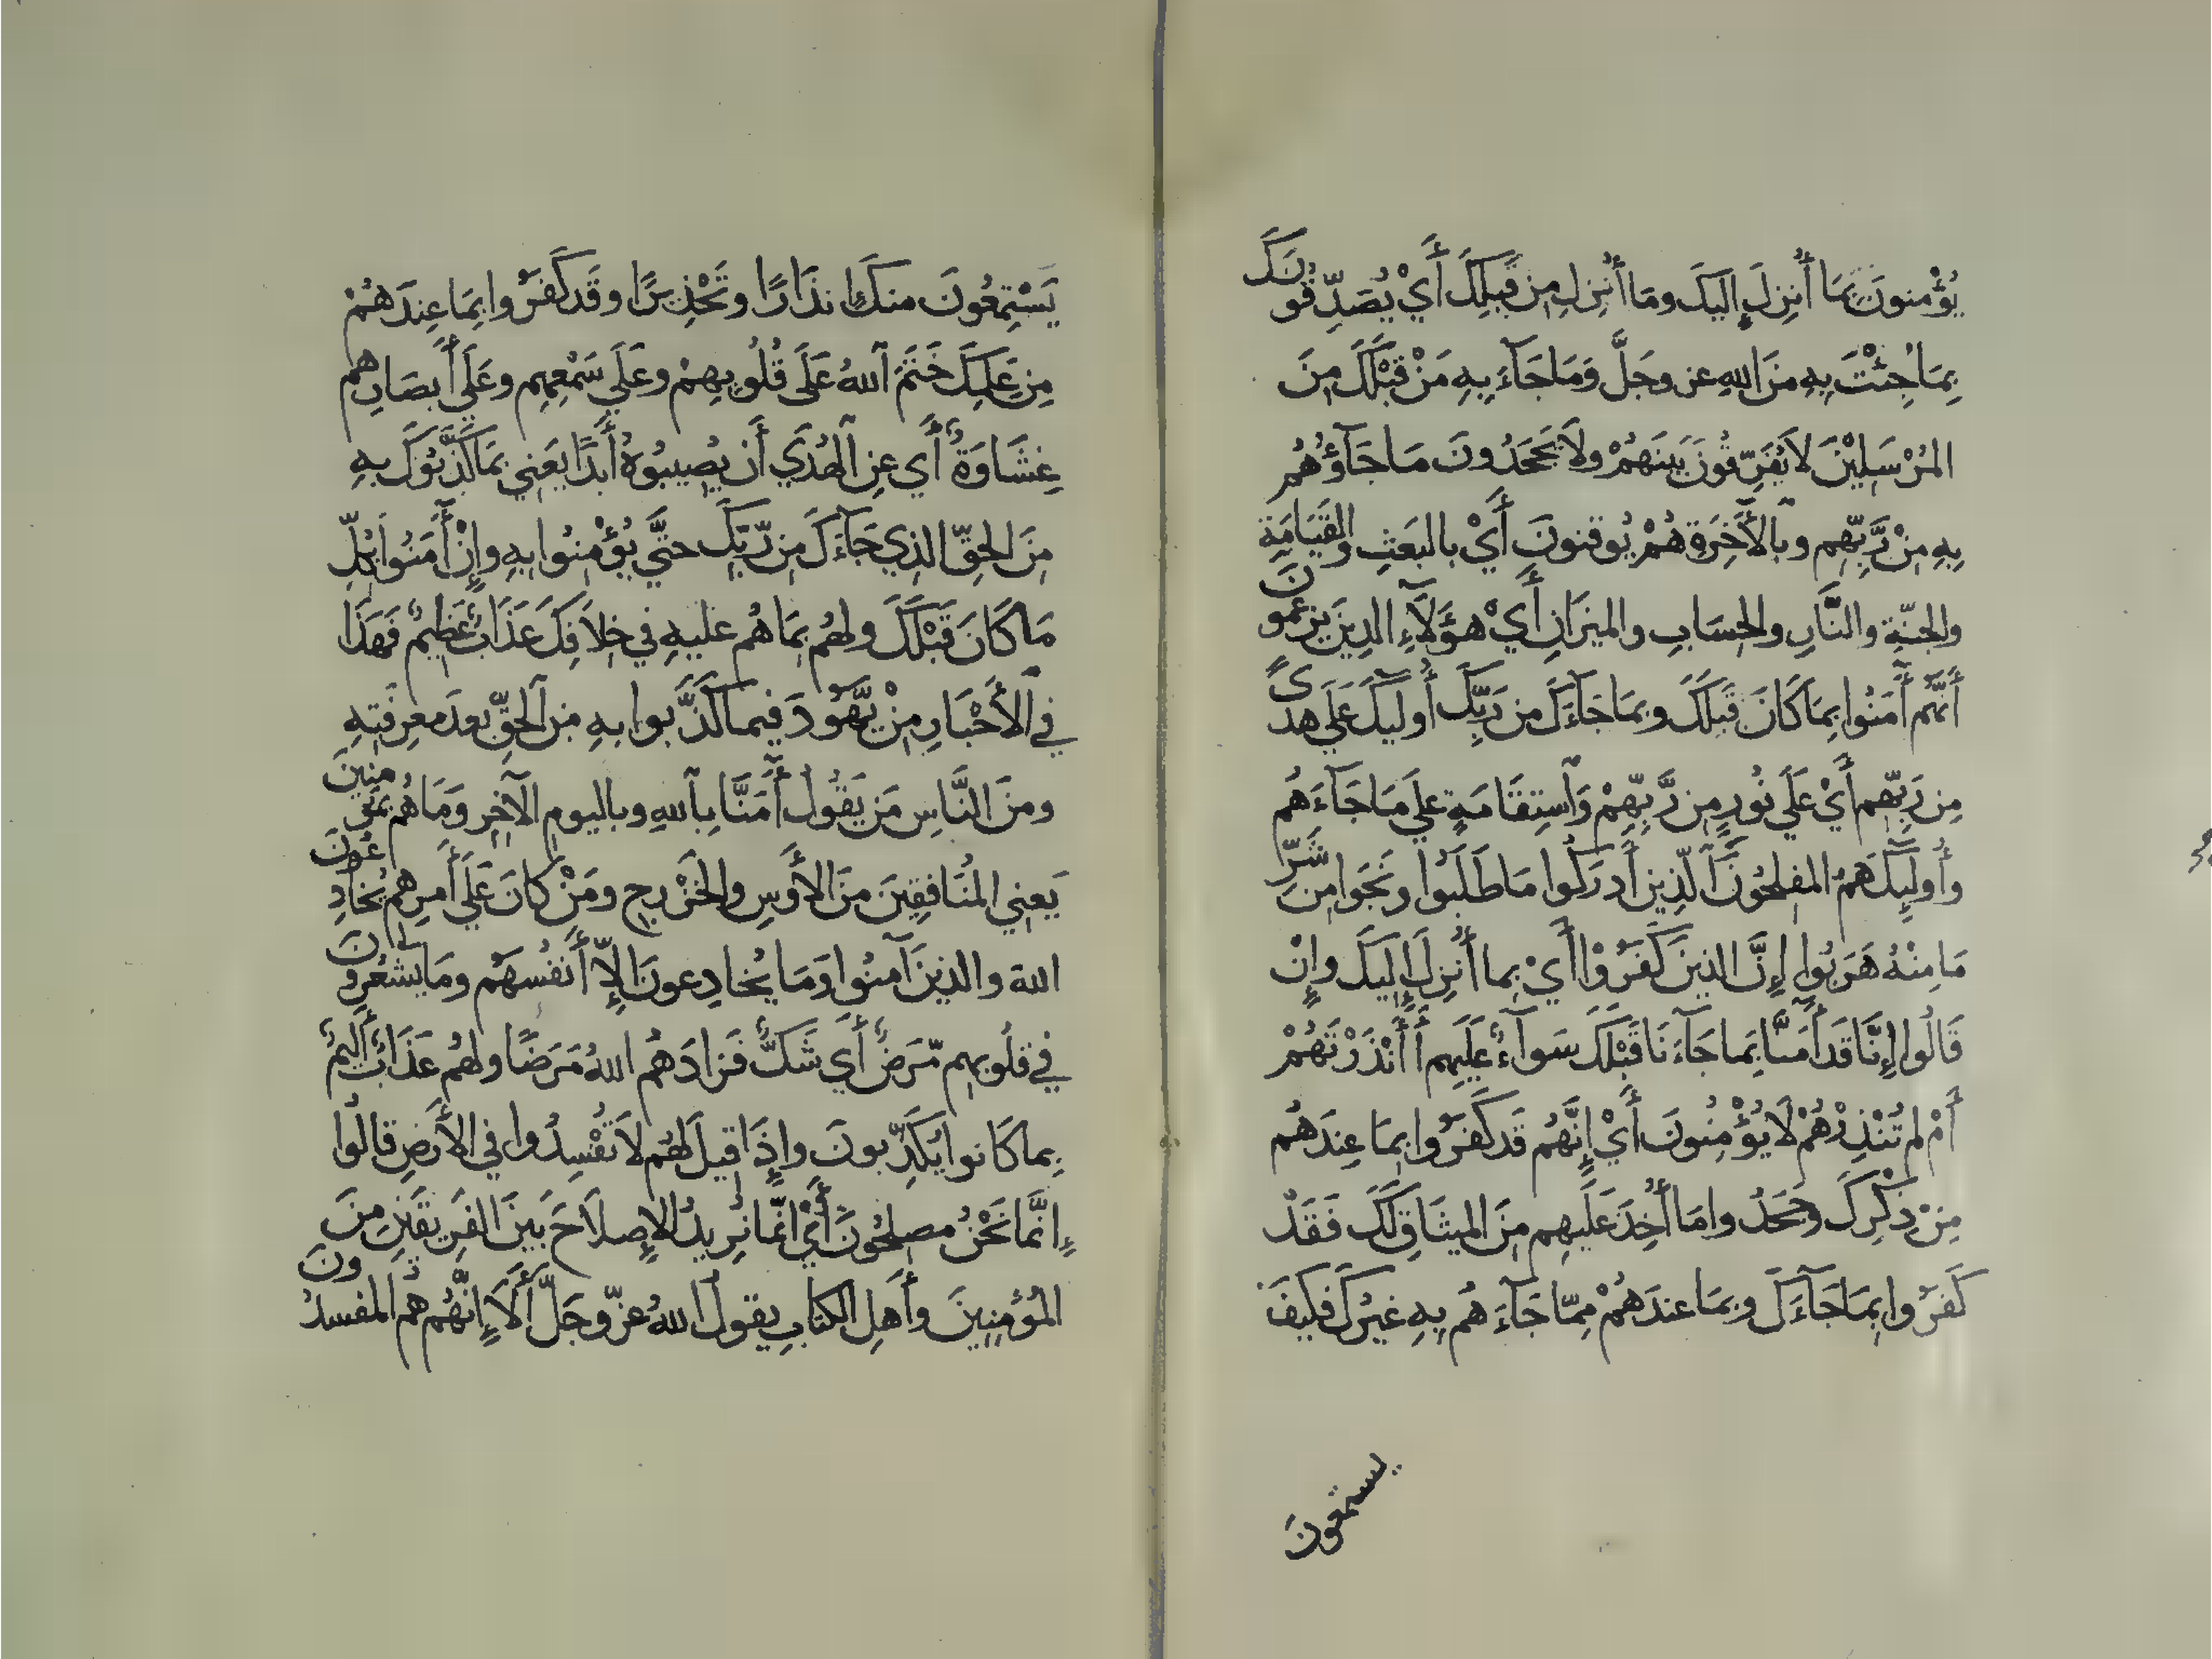 يُؤْمنونَ بِمَا أُنزِلَ إِليكَ ومَا أُنزِلَ مِن قَبلِكَ أَيْ يُصَدِّقُونَكَ
بِمَا جِئْتَ بِهِ مَنَ اللهِ عز وجَلَّ وَمَا جَآءَ بِهِ مَنْ قَبْلَكَ مِنَ
المُرْسَلِيْنَ لاَ يُفَرِّقُونَ بَينَهُمْ ولاَ يَجْحَدُونَ مَا جَآؤُهُم
بِهِ مِنْ رَّبِّهِم وبالأَخِرَةِ هُمْ يُوقنونَ أَيْ بالبَعَثِ والقَيَامَةِ
والجنّةِ والنَّارِ والحِسَابِ والميزَانِ أَيْ هؤَلآءِ الذِينَ يزعمونَ
أَنَّهُم أَمَنُوا بِمَا كَانَ قَبلَكَ وبمَا جَآءَكَ من رَبِّكَ أُوليكَ عَلَي هدىً
مِن رَبِّهم أَيْ عَلَي نُورٍ مِن رَّبِّهِمْ وَاستِقَامَةٍ علَي مَا جَآءَهُم
وأُولَيِكَ هَمُ المفلحُونَ الّذِينَ أَدرَكُوا مَا طَلَبُوا ونَجَوا من شَرِّ
مَا مِنْهُ هَرَبُوا إِنَّ الذينَ كَفَرُوْا أَيْ بما أُنزِلَ إِليكَ وإِنْ
قَالُوا إِنَّا قَد أَمَنَّا بِمَا جَآءَنَا قَبْلَكَ سَوآءٌ عَلَيهِم أَأَنْذَرْتَهُمْ
أَمْ لم تُنْذِرْهُمْ لَا يُؤْمِنُونَ أَيْ إِنَّهُم قَد كَفَرُوا بِمَا عِندَهُم
مِنْ ذِكْرِكَ وَجَحَدُوا مَا أُخِذَ عَلَيهِم مِنَ الميثَاقِ لَكَ فَقَدْ
كَفَرُوا بِمَا جَآءَكَ وبمَا عندَهُمْ مِمّا جَآءَهُم بِهِ غيرُكَ فكيفَ
يستمعُونَ
يَسْتِمعُونَ منكَ إِنذَارًا وتَحْذِيرًا وقَد كَفَرُوا بِمَا عِندَهُمْ
مِن عِلمِكَ خَتَمَ اللهُ عَلَى قُلُوبِهِمْ وعَلَي سَمْعِهِم وعَلَي أَبصَارِهم
غِشَاوَةٌ أَي عنِ الهُدَي أَن يُصِيبُوهُ أَبَدًا يَعني بمَا كَذَّبُوكَ بِهِ
مِنَ الحقِّ الذِي جَآءَكَ مِن رّبِّكَ حتَّي يُؤْمِنُوا بِهِ وإِنْ أَمَنُوا بِكُلِّ
مَا كَانَ قَبْلَكَ ولهُم بِمَا هُم عليهِ في خِلاَفِكَ عَذَابٌ عَظيمٌ فَهَذَا
في الأَحْبَارِ مِنْ يَّهُودَ فيما كَذَّبوا بهِ مِنَ الحَقِّ بعدَ معرِفَتِهِ
ومنَ النَّاسِ مَن يَقُولُ أَمَنَّا بِاللهِ وباليومِ الآخِرِ وَمَا هُم بمؤمنِينَ
يَعنِي المُنَافِقِينَ منَ الأَوسِ والخَزْرجِ ومَنْ كانَ عَلَي أَمرِهم يُخَادِعُونَ
اللهَ والذينَ آمنُوا وَمَا يُخادِعونَ إِلاّ أَنفُسهَم ومَا يشعُرونَ
في قلُوبهِم مّرَضٌ أَي شَكٌّ فَزادَهُم اللهُ مَرَضًا ولهُم عَذَابٌ أَليمٌ
بِما كَانوا يُكَذِّبونَ وإِذَا قيلَ لهُم لاَ تُفْسِدُوا في الأَرَضِ قالُوا
إِنَّمَا نَحْنُ مصلِحُونَ أَيْ إنّمَا نُرِيدُ الإِصلاَحَ بَينَ الفَرِيقَينِ مِنَ
المُؤمِنِينَ وأَهلِ الكتَابِ يقولُ اللهُ عزّ وجَلَّ أَلاَ إِنَّهُم هُم المفسدُونَ